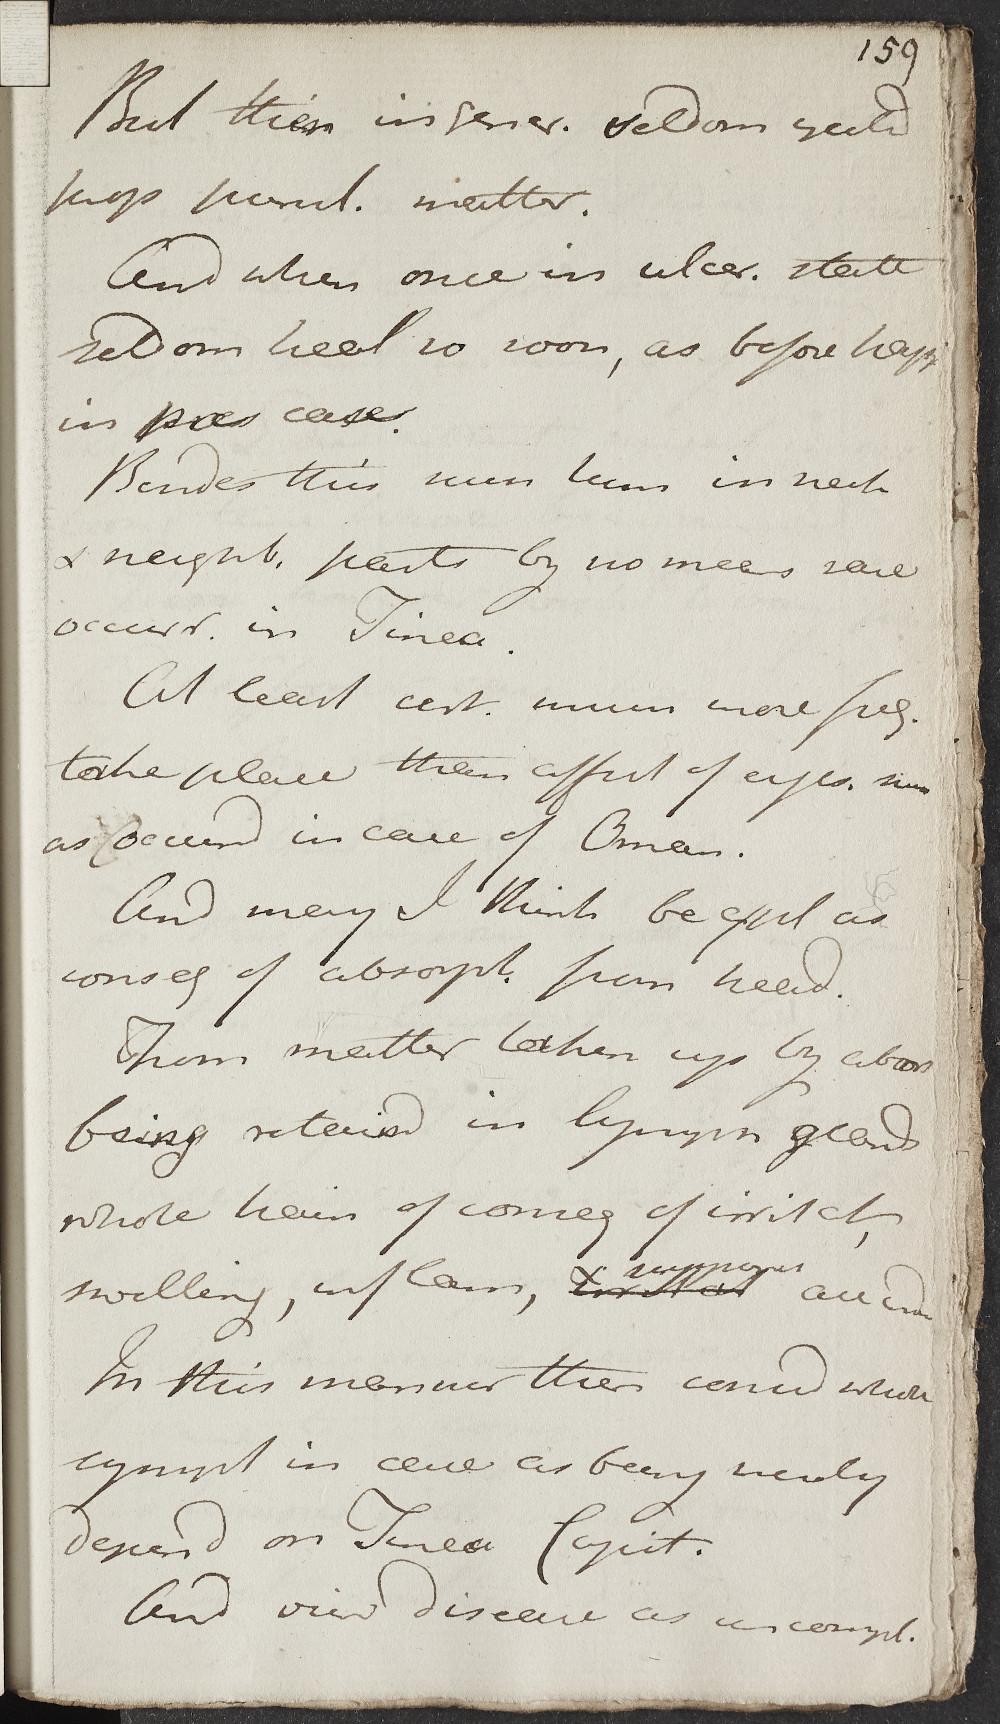 159
But these in gener. seldom yield
prop purul. matter.
And when once in ulcer. state
seldom heal so soon, as before happ
in pres case.
Besides this num tum in neck
& neighb. parts by no means rare
occurr. in Tinea.
At least cert. much more freq.
take place than affect of eyes.
as occurrd in case of Oman.
And may I think be expl as
conseq of absorpt. from head.
From matter taken up by absor
being retaind in lymph glands
whole train of conseq of irritat,
swelling, inflam, & suppurat all
In this manner then consid whole
sympt in case as being merely
depend on Tinea Capit.
And view disease as uncompl.